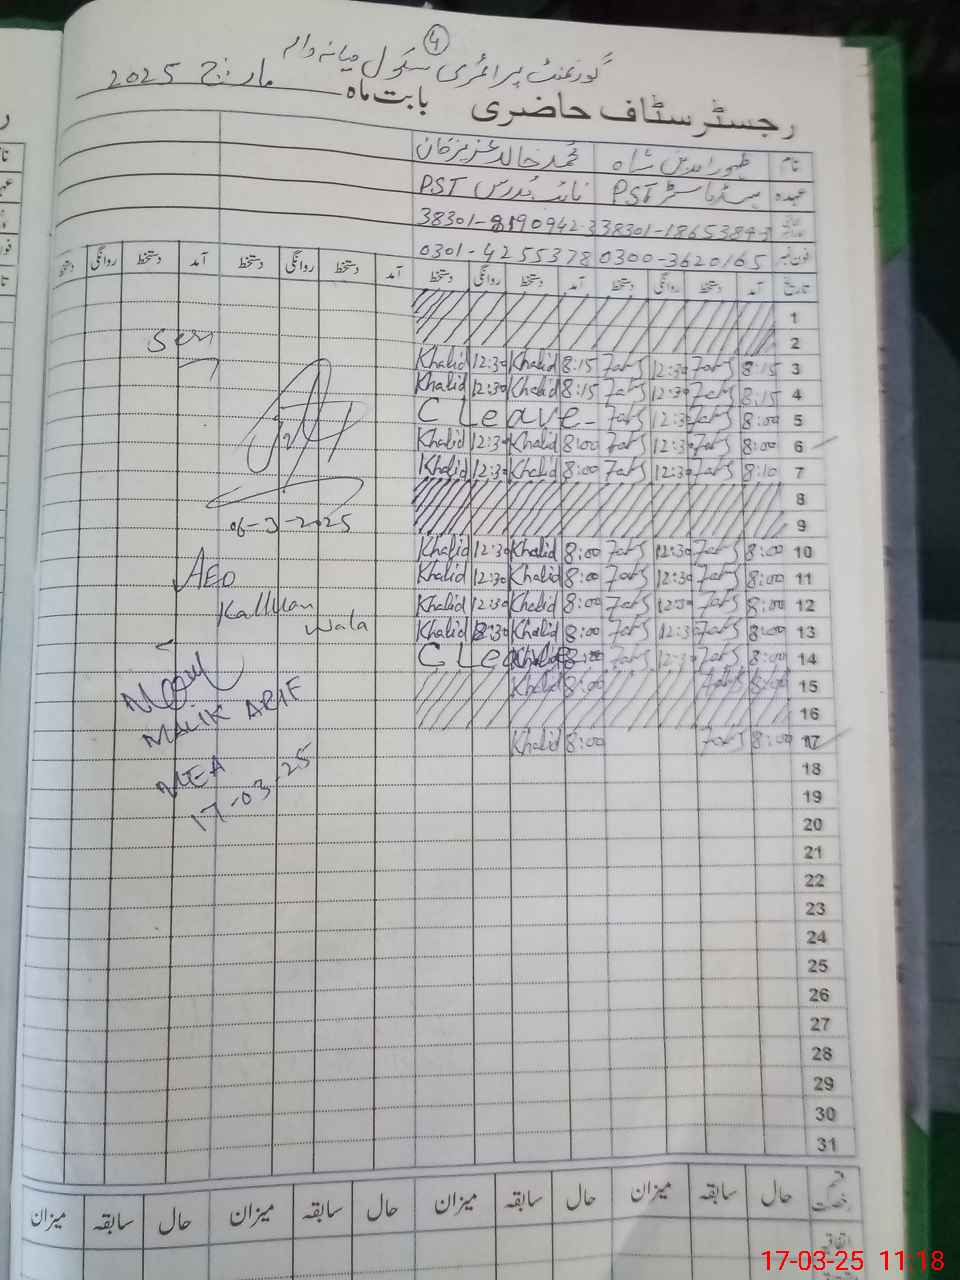 4
گورنمنٹ پرائمری سکول میانہ والہ
رجسٹر سٹاف حاضری بابت ماہ مارچ 2025
نام ظہور الدین شاہ محمد خالد عزیز خان
عہدہ ہیڈ ماسٹر PST نائب مدرس PST
38301-1865389-3 38301-8190942-3
فون نمبر 0300-3620165 0301-4255378
تاریخ آمد دستخط روانگی دستخط آمد دستخط روانگی دستخط آمد دستخط روانگی دستخط آمد دستخط روانگی دستخط
1
2
Khalid 12:30 Khalid 8:15 12:30 8:15 3
Khalid 12:30 Khalid 8:15 12:30 8:15 4
C Leave 12:30 8:00 5
Khalid 12:30 Khalid 8:00 12:30 8:00 6
Khalid 12:30 Khalid 8:00 12:30 8:10 7
8
9
Khalid 12:30 Khalid 8:00 12:30 8:00 10
Khalid 12:30 Khalid 8:00 12:30 8:00 11
Khalid 12:30 Khalid 8:00 12:30 8:00 12
Khalid 12:30 Khalid 8:00 12:30 8:00 13
C Leave 12:30 8:00 14
Khalid 8:00 8:00 15
16
Khalid 8:00 8:00 17
18
19
20
21
22
23
24
25
26
27
28
29
30
31
Seen
06-3-2025
AEO
Kallwan
wala
MALIK ARIF
MEA
17-03-25
قسم رخصت حال سابقہ میزان حال سابقہ میزان حال سابقہ میزان حال سابقہ میزان
اتفاقیہ
17-03-25 11:18